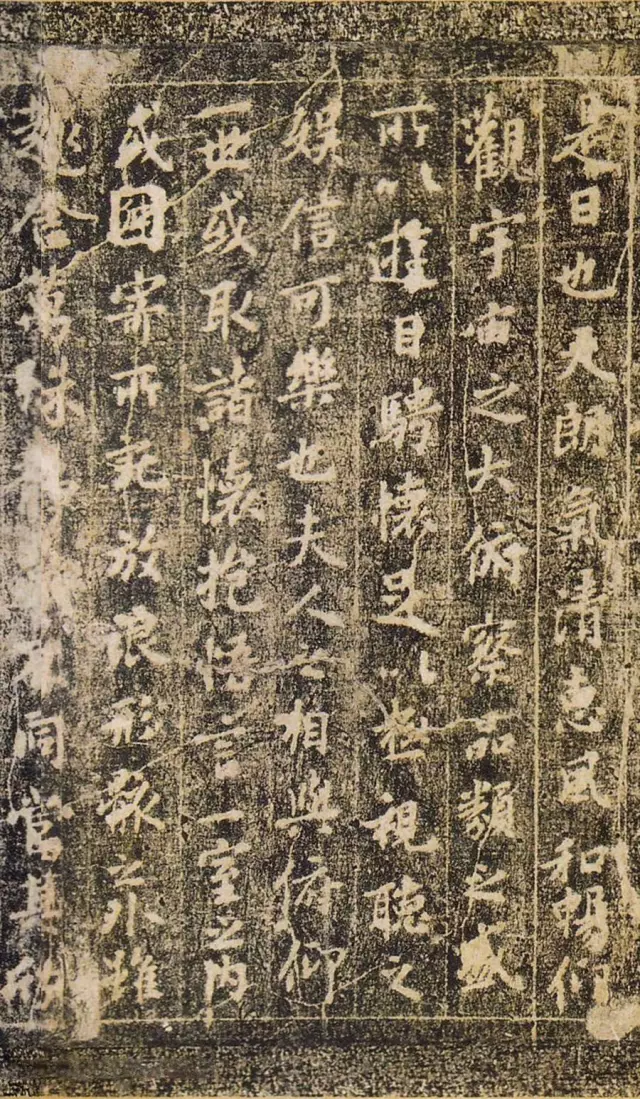 是日也天朗氣清惠風和暢仰
觀宇宙之大俯察品類之盛
所以遊目騁懷足以極視聽之
娛信可樂也夫人之相與俯仰
一世或取諸懷抱悟言一室之內
或因寄所託放浪形骸之外雖
趣舍萬殊躁不同當其欣